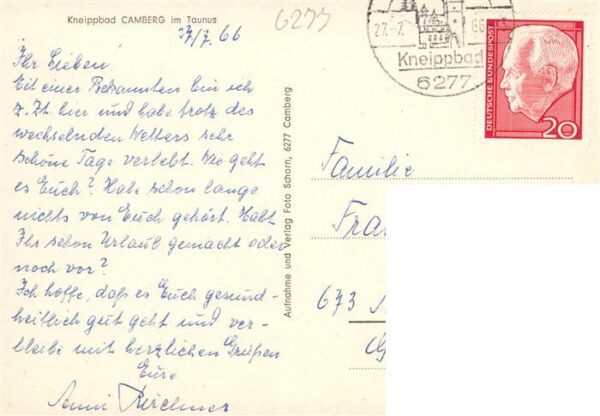 Kneippbad CAMBERG im Taunus
6277
27/7. 66
Ihr Lieben!
Mit einer Bekannten bin ich
z. Zt. hier und habe trotz des
wechselnden Wetters sehr
schöne Tage verlebt. Wie geht
es Euch? Habe schon lange
nichts von Euch gehört. Habt
Ihr schon Urlaub gemacht oder
noch vor?
Ich hoffe, daß es Euch gesund-
heitlich gut geht und ver-
bleibe mit herzlichen Grüßen
Eure
Anni Kirchner
Aufnahme und Verlag Foto Schorn, 6277 Camberg
27.-7. 66
Kneippbad
6277
DEUTSCHE BUNDESPOST
20
Familie
Fra
673